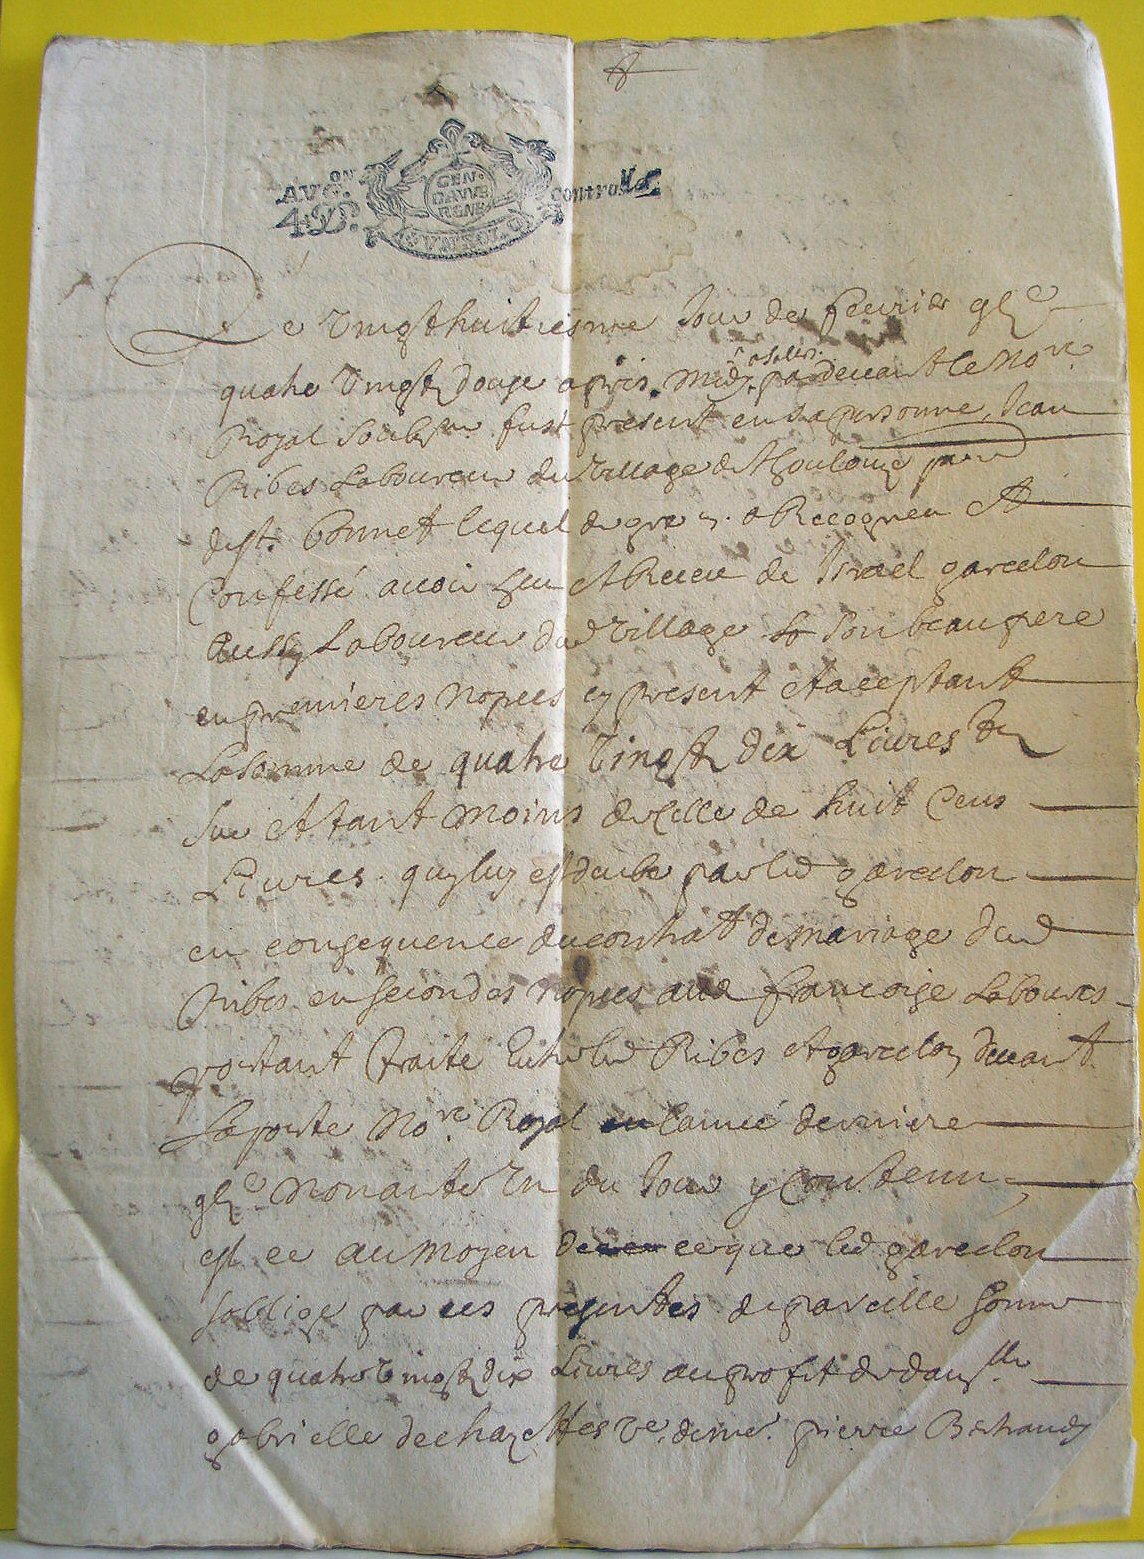 AVG.ON
4 D.
GEN.
DAVVE
RGNE
VN SOL
Controlle
Le vingt huit iesme Jour de feuvrier
quatre vingtz douze apres midy pardevant le No.re
Royal soubs.ne fust present en sa personne Jean
Ribes Laboureur du village de
de St. Bonnet lequel de gre a Recogneu et
Confessé avoir heu et Receu de Israel garcelon
aussy Laboureur dud village son beau pere
en premieres nopces cy present et aceptant
La somme de quatre vingtz dix Livres
sur et tant moins de celle de huit Cens
Livres quy luy est deube par led garcelon
en consequence du contrat de mariage dud
Ribes en secondes nopces avec francoise Laboures
portant traité entre led Ribes et garcelon devant
Laporte No.re Royal en lanneé derniere
nonante Un du Jour y Contenu
est ce au moyen de ce que led garcelon
soblige par ces presentes de pareille somme
de quatre vingtz dix Livres au profit de dam.lle
gabrielle dechazettes ve. de me. pierre Bertrand